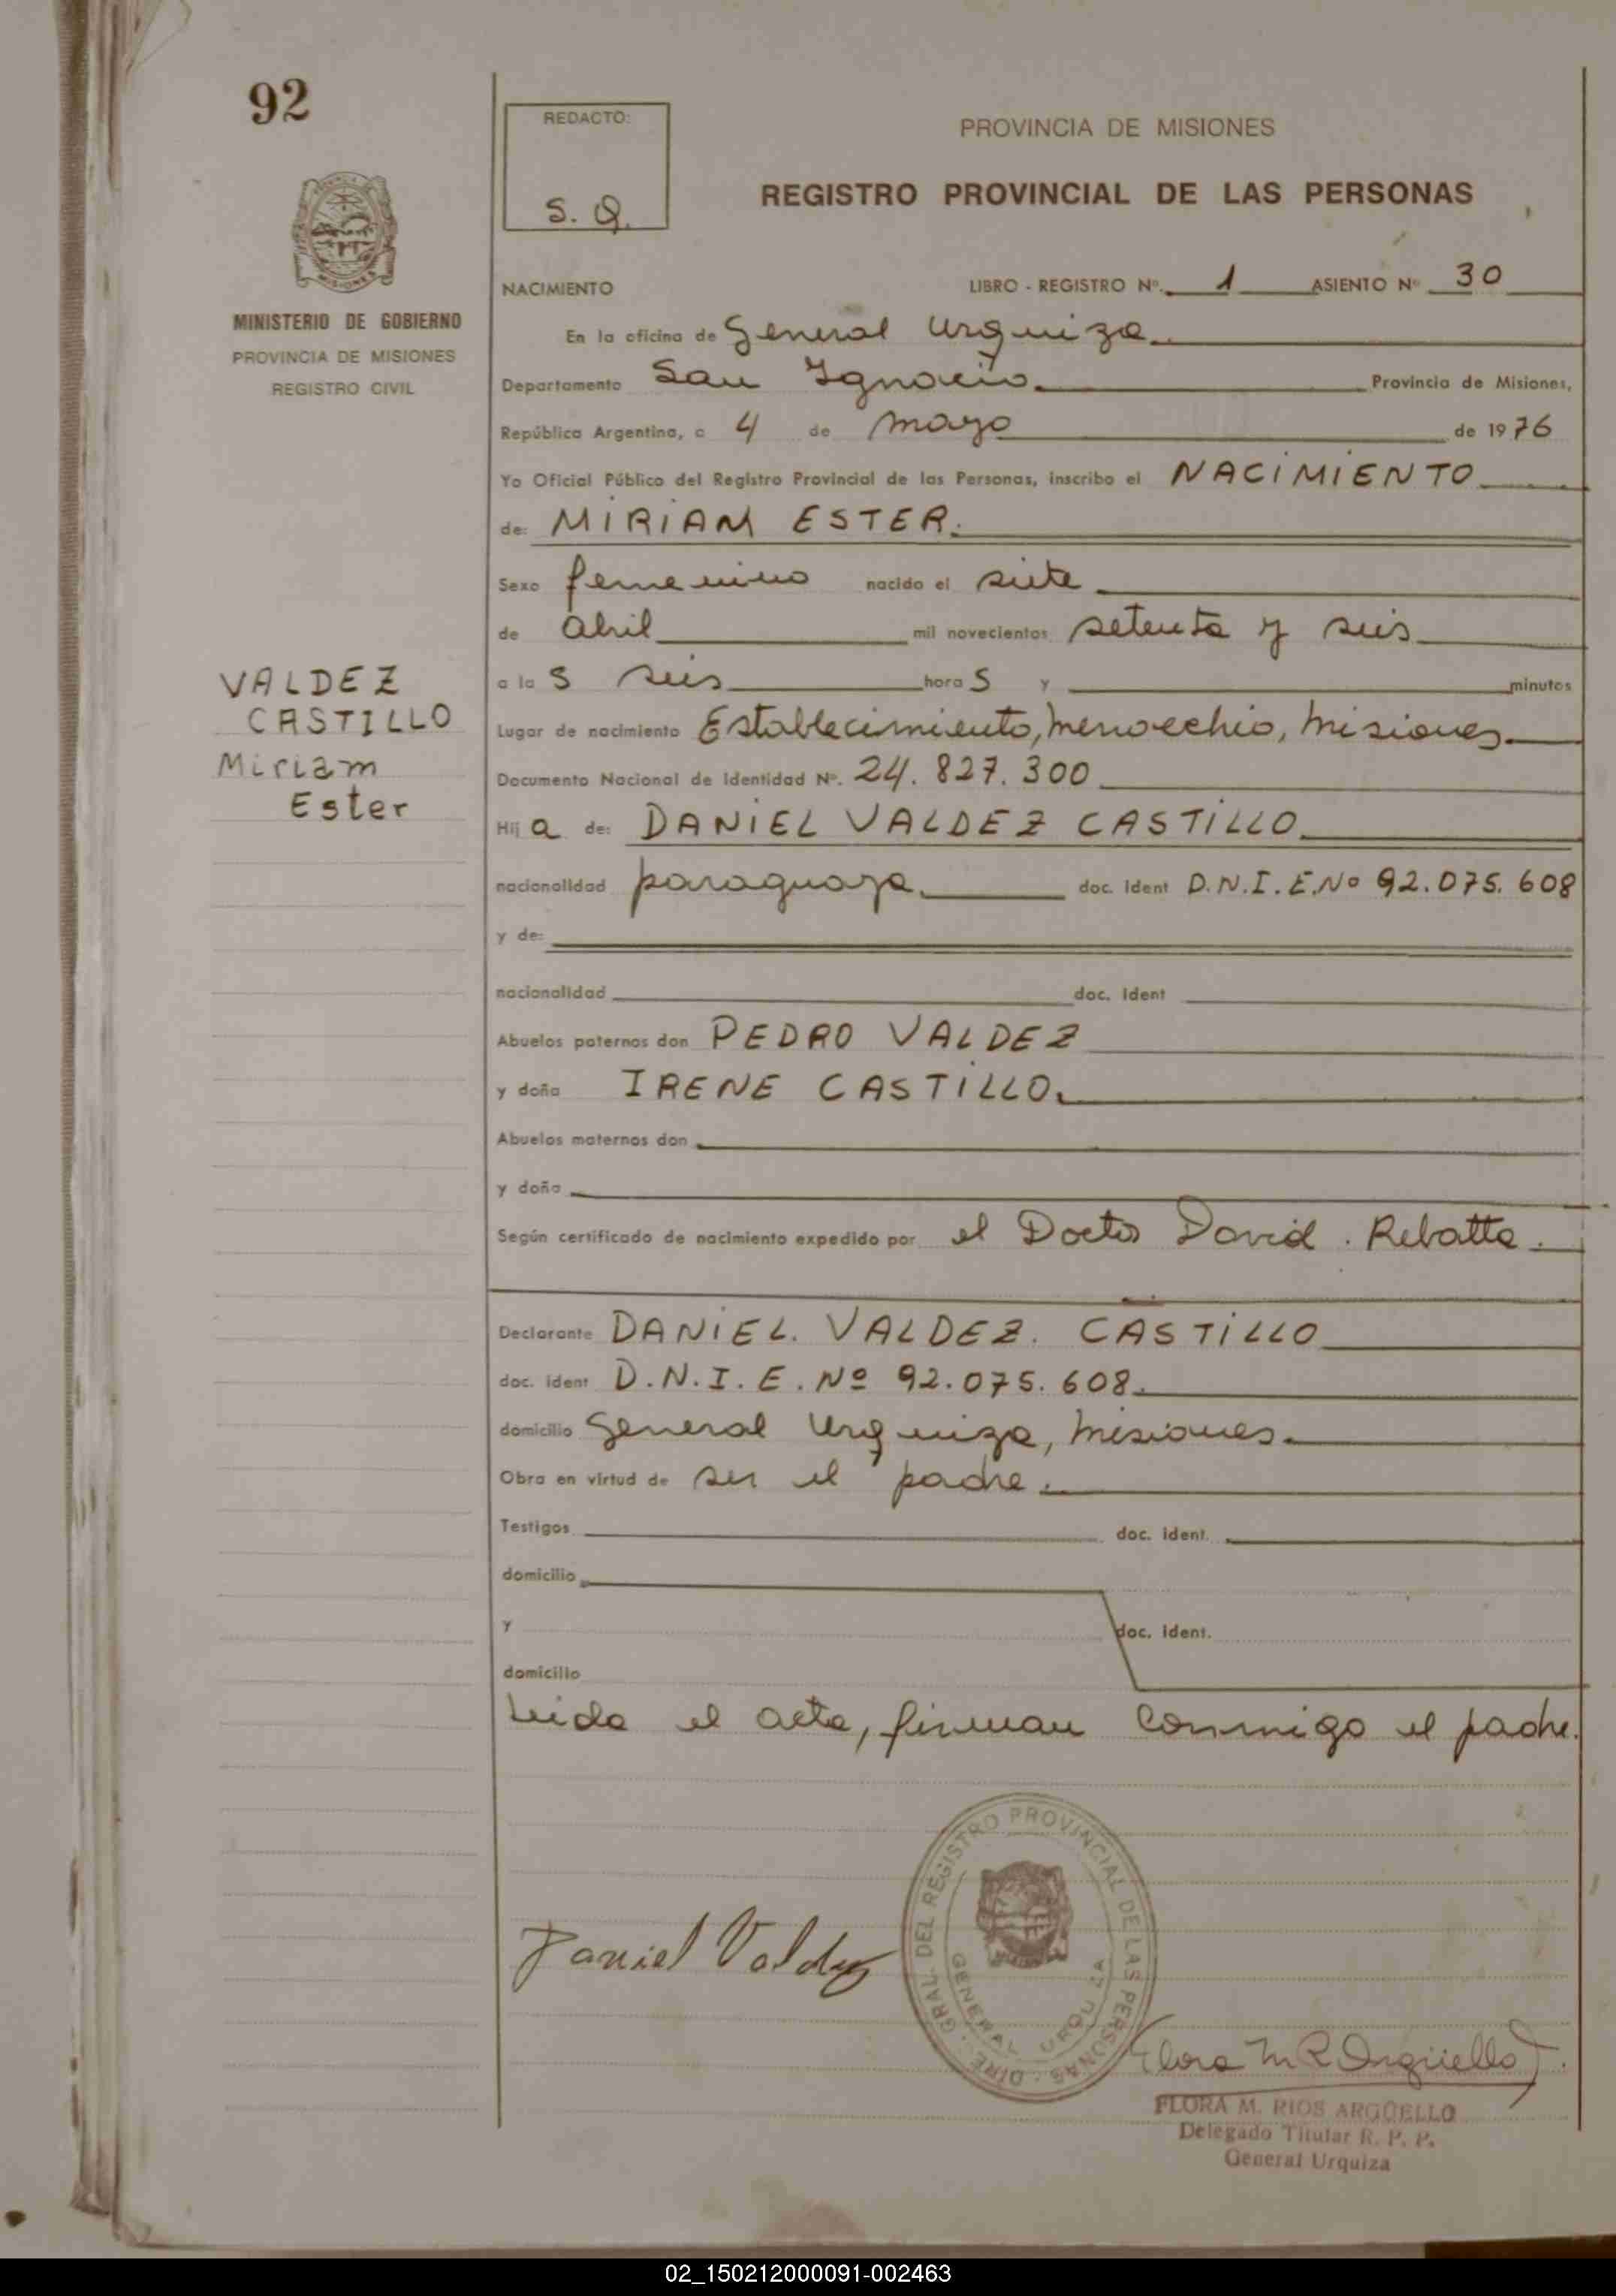 92
REDACTO:
S. Q.
PROVINCIA DE MISIONES
REGISTRO PROVINCIAL DE LAS PERSONAS
MINISTERIO DE GOBIERNO
PROVINCIA DE MISIONES
REGISTRO CIVIL
NACIMIENTO LIBRO - REGISTRO Nº. 1 ASIENTO Nº 30
En la oficina de General Urquiza
Departamento San Ignacio. Provincia de Misiones,
República Argentina, a 4 de mayo de 1976
Yo Oficial Público del Registro Provincial de las Personas, inscribo el NACIMIENTO
de: MIRIAM ESTER.
Sexo femenino nacido el siete
de abril mil novecientos setenta y seis
a las seis horas y minutos
VALDEZ
CASTILLO
Miriam
Ester
Lugar de nacimiento Establecimiento, Menocchio, Misiones.
Documento Nacional de Identidad Nº. 24.827.300
Hija de: DANIEL VALDEZ CASTILLO
nacionalidad paraguaya. doc. ident D.N.I.E.Nº 92.075.608
y de:
nacionalidad doc. ident
Abuelos paternos don PEDRO VALDEZ
y doña IRENE CASTILLO.
Abuelos maternos don
y doña
Según certificado de nacimiento expedido por el Doctor David. Rebatta.
Declarante DANIEL. VALDEZ. CASTILLO
doc. ident D.N.I.E. Nº 92.075.608.
domicilio General Urquiza, Misiones.
Obra en virtud de ser el padre.
Testigos doc. ident.
domicilio
y doc. ident.
domicilio
Leida el acta, firman conmigo el padre.
DIRE. GRAL. DEL REGISTRO PROVINCIAL DE LAS PERSONAS
GENERAL URQUIZA
Daniel Valdez
Flora M R Argüello
FLORA M. RIOS ARGÜELLO
Delegado Titular R. P. P.
General Urquiza
02_150212000091-002463